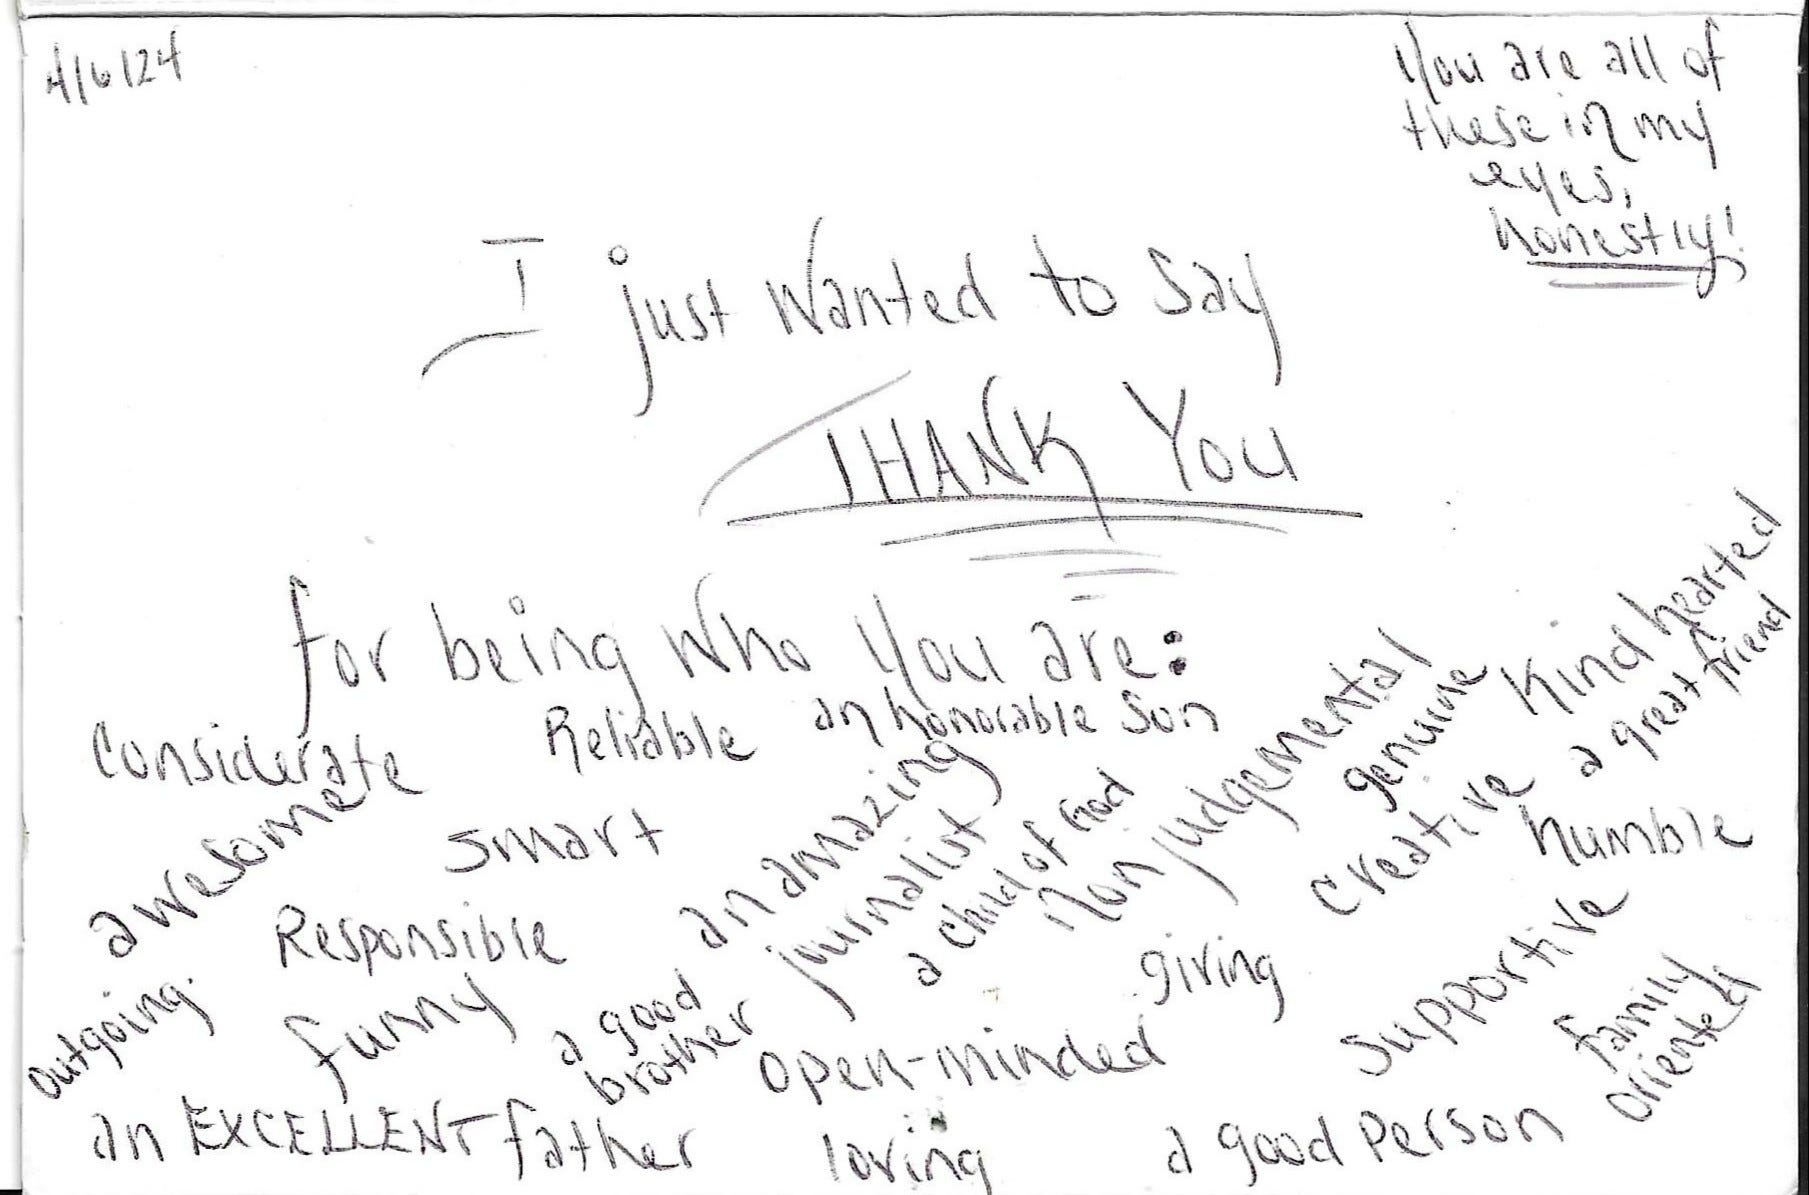 4/6/24
You are all of
these in my
eyes,
honestly!
I just wanted to say
THANK YOU
for being who you are:
Considerate
Reliable
an honorable son
awesome
smart
an amazing
journalist
a child of God
non judgemental
genuine
Kind hearted
a great friend
Creative
humble
Responsible
Outgoing
funny
a good
brother
open-minded
giving
supportive
family
oriented
an EXCELLENT father
loving
a good person